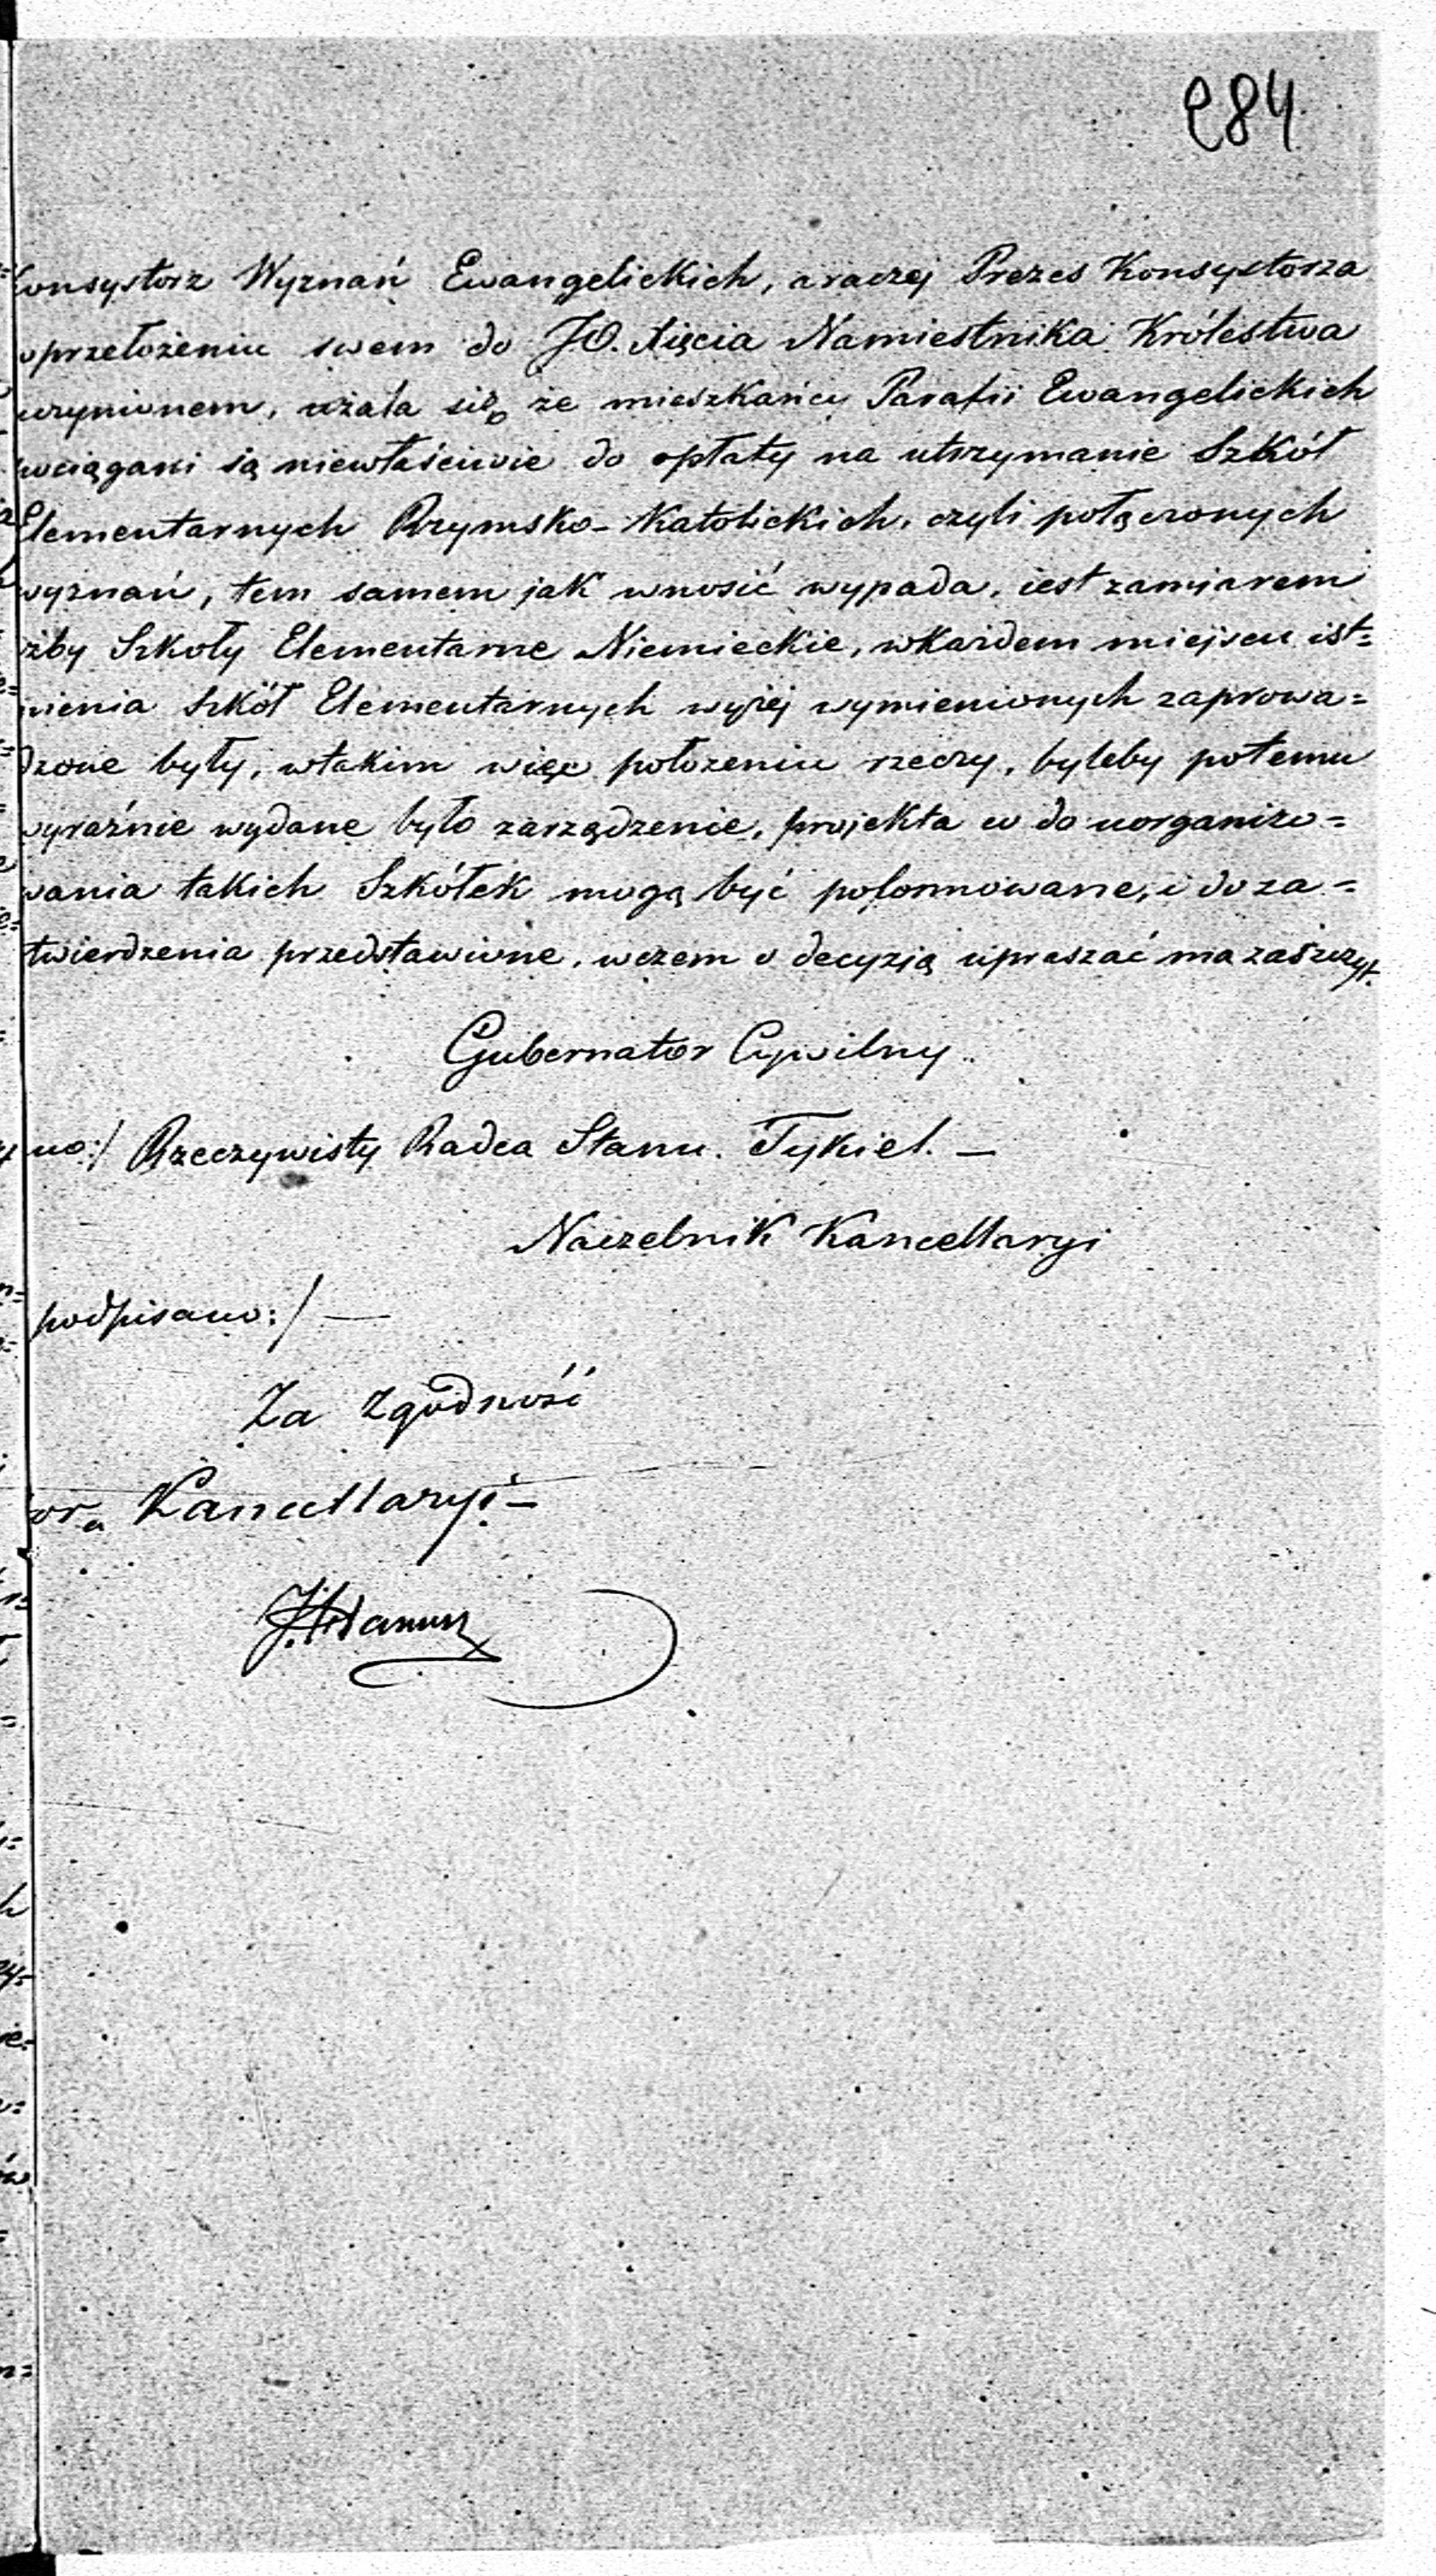 284
Konsystorz Wyznań Ewangelickich, a raczej Prezes Konsystorza
w przełożeniu swem do J.O. Xięcia Namiestnika Królestwa
uczynionem, użala się że mieszkańcy Parafii Ewangelickich
pociągani są niewłaściwie do opłaty na utrzymanie Szkół
Elementarnych Rzymsko-Katolickich, czyli połączonych
wyznań, tem samem jak wnosić wypada, iest zamiarem
iżby Szkoły Elementarne Niemieckie, w każdem miejscu ist=
nienia Szkół Elementarnych wyżej wymienionych zaprowa=
dzone były, w takim więc położeniu rzeczy, byleby potemu
wyraźnie wydane było zarządzenie, projekta do uorganizo=
wania takich Szkółek mogą być poformowane, i do za=
twierdzenia przedstawione, w czem o decyzją upraszać ma zaszczyt.
Gubernator Cywilny
no:/ Rzeczywisty Radca Stanu. Tykiel. —
Naczelnik Kancellaryi
podpisano:/ —
Za Zgodność
Kancellaryi —